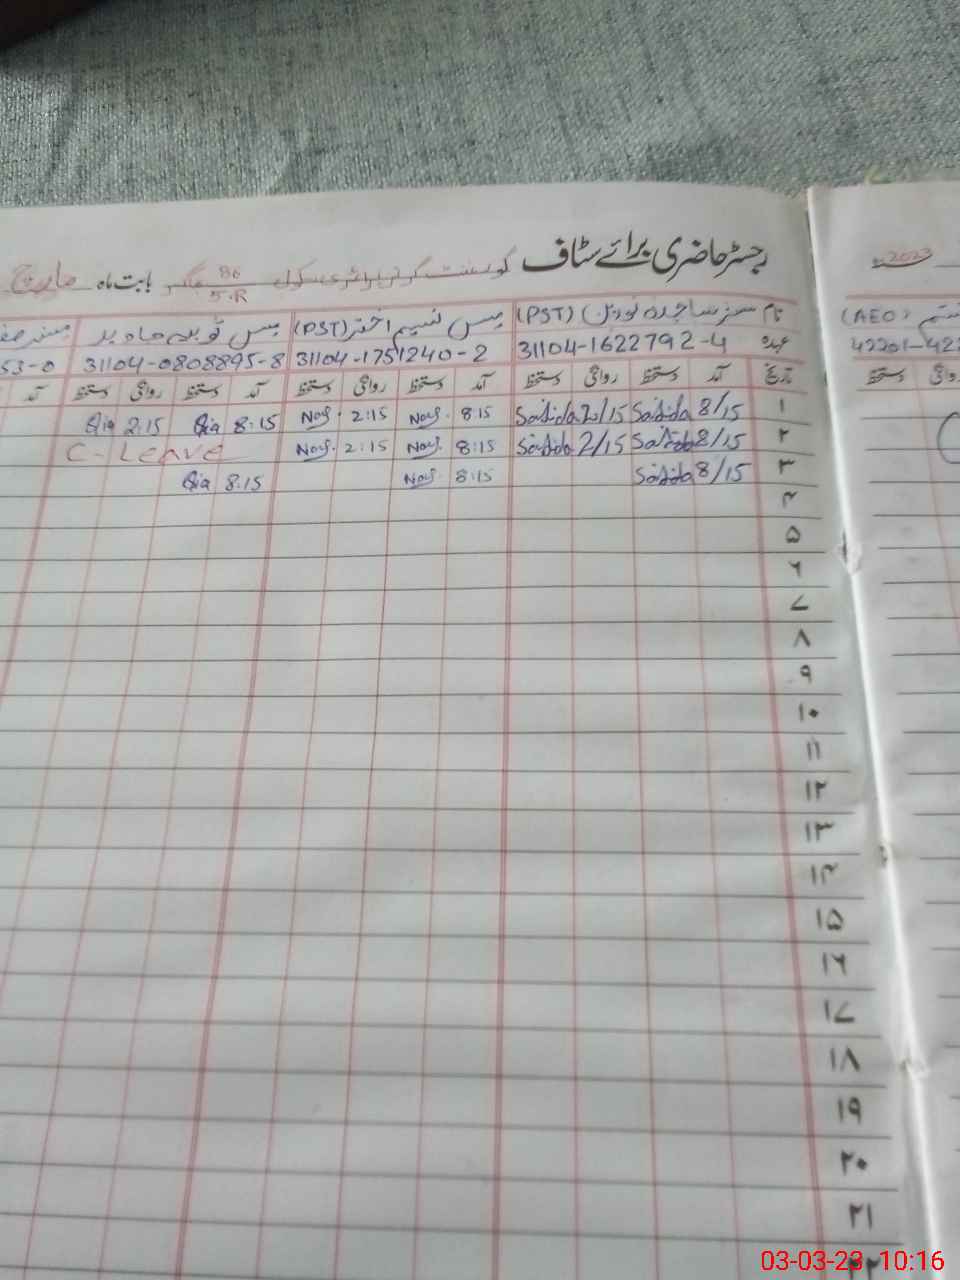 رجسٹر حاضری برائے سٹاف گورنمنٹ گرلز پرائمری سکول 86/5.R بابت ماہ مارچ 2023
نام مسز ساجدہ نورین (PST) مس نسیم اختر (PST) مس ثوبیہ جاوید
عہدہ 31104-1622792-4 31104-1751240-2 31104-0808895-8 53-0
تاریخ آمد دستخط روانگی دستخط آمد دستخط روانگی دستخط آمد دستخط روانگی دستخط آمد
۱ 8/15 Sajida 2/15 Sajida 8:15 2:15 8:15 2:15
۲ 8/15 Sajida 2/15 Sajida 8:15 2:15 C-Leave
۳ 8/15 Sajida 8:15 8:15
۴
۵
۶
۷
۸
۹
۱۰
۱۱
۱۲
۱۳
۱۴
۱۵
۱۶
۱۷
۱۸
۱۹
۲۰
۲۱
۲۲
(AEO)
42201-422
روانگی دستخط
03-03-23 10:16